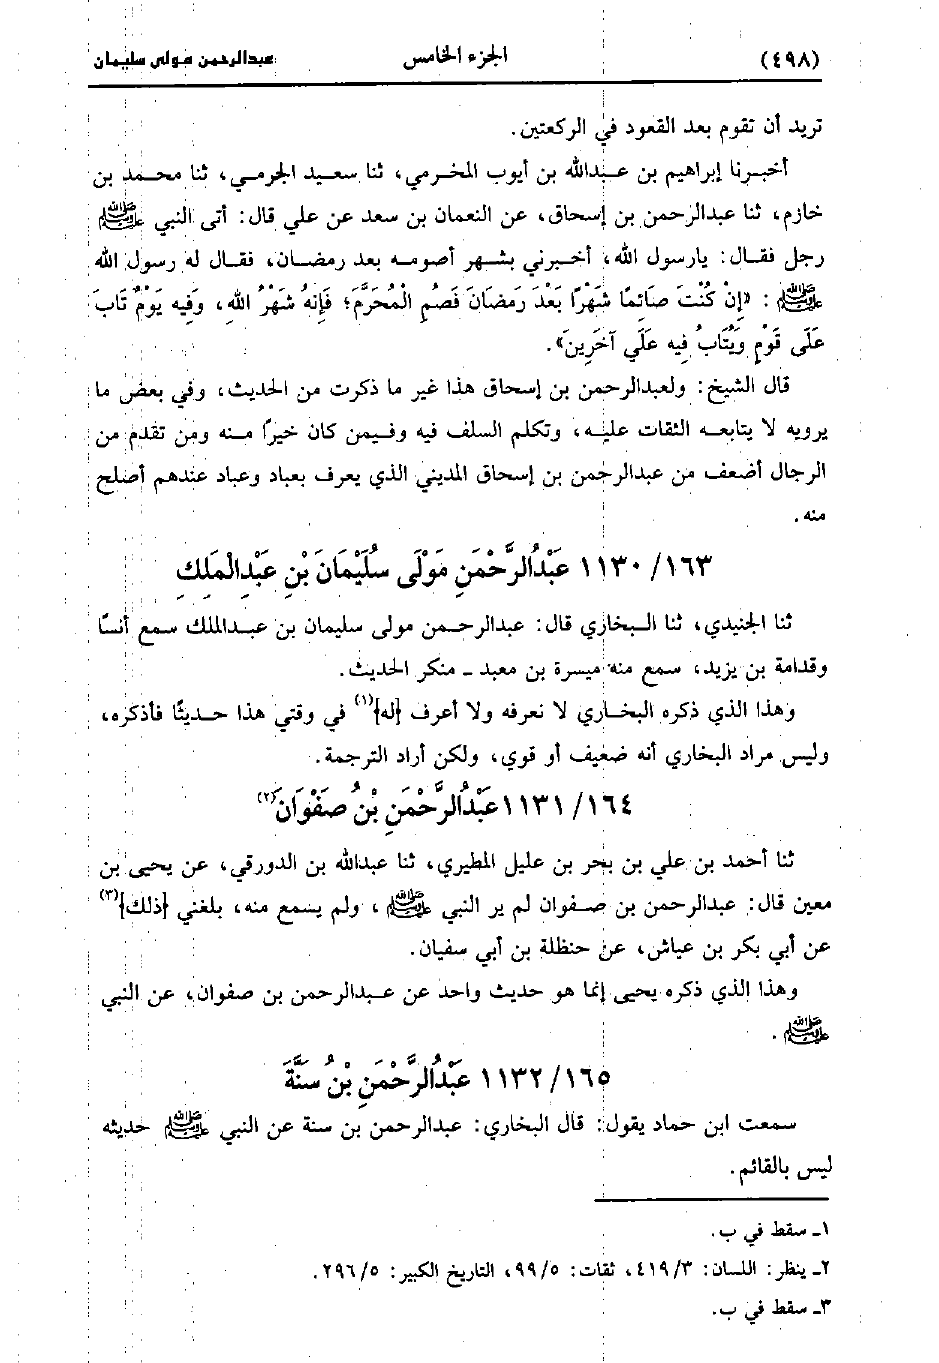 (٤٩٨) الجزء الخامس عبدالرحمن مولى سليمان
تريد أن تقوم بعد القعود في الركعتين.
أخبرنا إبراهيم بن عبدالله بن أيوب المخرمي، ثنا سعيد الجرمي، ثنا محمد بن
خازم، ثنا عبدالرحمن بن إسحاق، عن النعمان بن سعد عن علي قال: أتى النبي ﷺ
رجل فقال: يارسول الله، أخبرني بشهر أصومه بعد رمضان، فقال له رسول الله
ﷺ: «إِنْ كُنْتَ صَائِمًا شَهْرًا بَعْدَ رَمَضَانَ فَصُمِ الْمُحَرَّمَ؛ فَإِنَهُ شَهْرُ اللهِ، وَفِيهِ يَوْمٌ تَابَ
عَلَى قَوْمٍ وَيُتَابُ فِيهِ عَلَي آخَرِينَ».
قال الشيخ: ولعبدالرحمن بن إسحاق هذا غير ما ذكرت من الحديث، وفي بعض ما
يرويه لا يتابعه الثقات عليه، وتكلم السلف فيه وفيمن كان خيرًا منه ومن تقدم من
الرجال أضعف من عبدالرحمن بن إسحاق المديني الذي يعرف بعباد وعباد عندهم أصلح
منه.
١١٣٠/١٦٣ عَبْدُالرَّحْمَنِ مَوْلَى سُلَيْمَانَ بْنِ عَبْدِالْمَلِكِ
ثنا الجنيدي، ثنا البخاري قال: عبدالرحمن مولى سليمان بن عبدالملك سمع أنسًا
وقدامة بن يزيد، سمع منه ميسرة بن معبد ـ منكر الحديث.
وهذا الذي ذكره البخاري لا نعرفه ولا أعرف [له](١) في وقتي هذا حديثًا فأذكره،
وليس مراد البخاري أنه ضعيف أو قوي، ولكن أراد الترجمة.
١١٣١/١٦٤ عَبْدُالرَّحْمَنِ بْنُ صَفْوَانَ(٢)
ثنا أحمد بن علي بن بحر بن عليل المطيري، ثنا عبدالله بن الدورقي، عن يحيى بن
معين قال: عبدالرحمن بن صفوان لم ير النبي ﷺ، ولم يسمع منه، بلغني [ذلك](٣)
عن أبي بكر بن عياش، عن حنظلة بن أبي سفيان.
وهذا الذي ذكره يحيى إنما هو حديث واحد عن عبدالرحمن بن صفوان، عن النبي
ﷺ.
١١٣٢/١٦٥ عَبْدُالرَّحْمَنِ بْنُ سَنَّةَ
سمعت ابن حماد يقول: قال البخاري: عبدالرحمن بن سنة عن النبي ﷺ حديثه
ليس بالقائم.
١ـ سقط في ب.
٢ـ ينظر: اللسان: ٤١٩/٣، ثقات: ٩٩/٥، التاريخ الكبير: ٢٩٦/٥.
٣ـ سقط في ب.